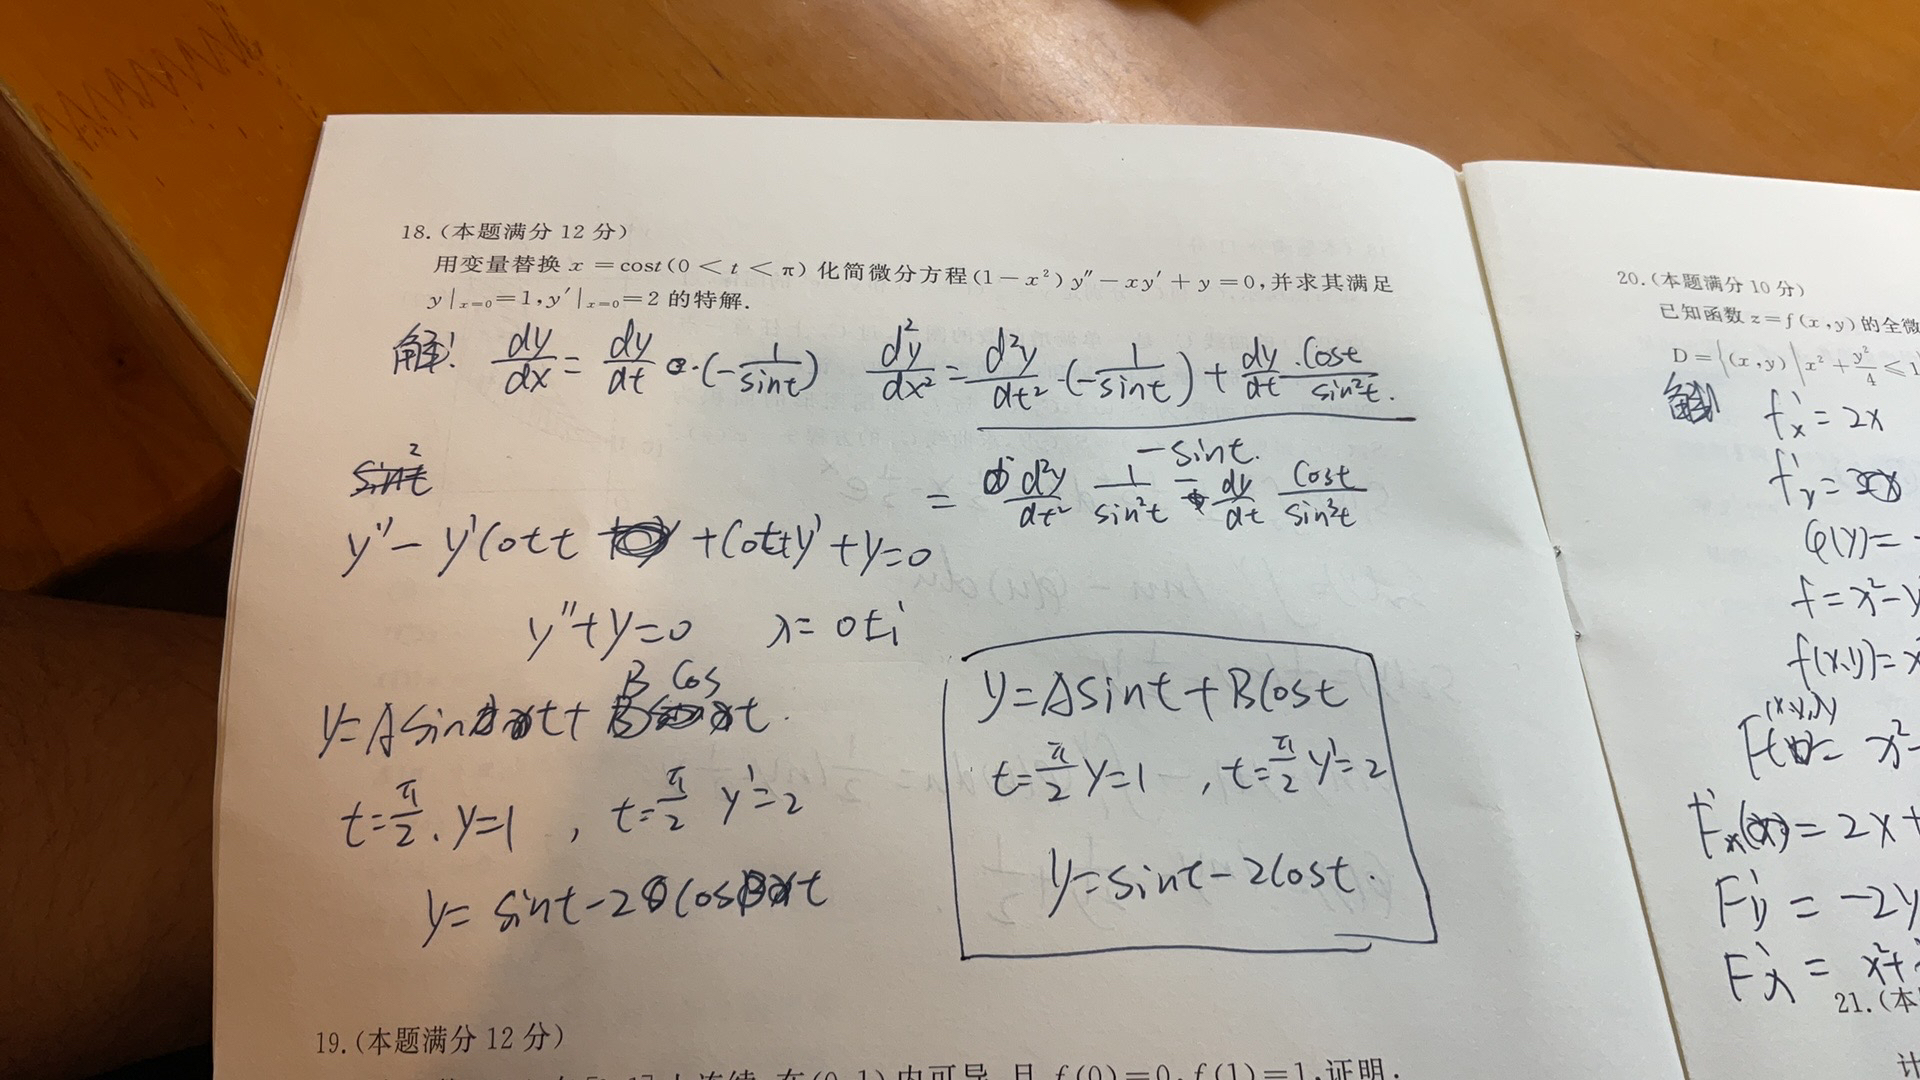 18.(本题满分 12 分)
用变量替换 x = cost(0 < t < π) 化简微分方程(1 − x²) y″ − xy′ + y = 0,并求其满足
y|ₓ₌₀=1,y′|ₓ₌₀=2 的特解.
解! dy/dx = dy/dt ·(−1/sint) d²y/dx² = (d²y/dt² ·(−1/sint) + dy/dt · cost/sin²t.)/(−sint.)
= d²y/dt² 1/sin²t − dy/dt cost/sin³t
y″ − y′cott + cott y′ + y = 0
y″ + y = 0 λ = 0±i
y = Asint + Bcost.
t = π/2. y = 1 , t = π/2 y′ = 2
y = sint − 2cost
y = Asint + Bcost
t = π/2 y = 1 , t = π/2 y′ = 2
y = sint − 2cost.
19.(本题满分 12 分)
内可导 且 f(0)=0,f(1)=1,证明.
20.(本题满分 10 分)
已知函数 z=f(x,y)的全微
D={(x,y)|x²+y²/4≤1
f′x = 2x
f′y =
φ(y) = −
f = x² − y
f(x,y) = x
(x,y,λ)
F = x² −
F′x = 2x +
F′y = −2y
F′λ = x² +
21.(本
计